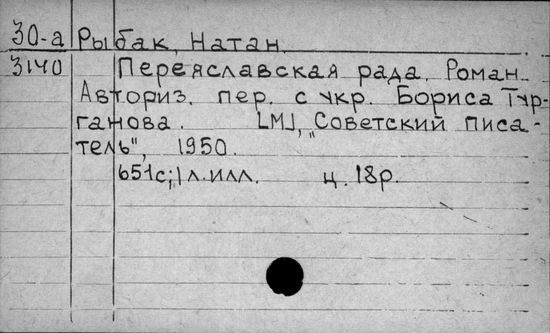 30-а Рыбак, Натан.
3140 Переяславская рада. Роман.
Авториз. пер. с укр. Бориса Тур-
ганова. [М], „Советский писа-
тель", 1950.
651с; 1 л.илл. ц. 18р.